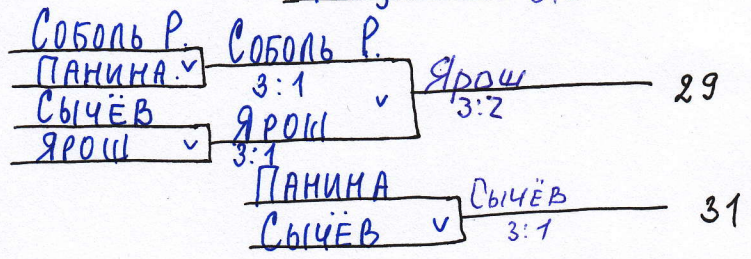 Соболь Р.
Панина
Сычёв
Ярош
Соболь Р.
3:1
Ярош
3:1
Ярош
3:2
29
Панина
Сычёв
Сычёв
3:1
31